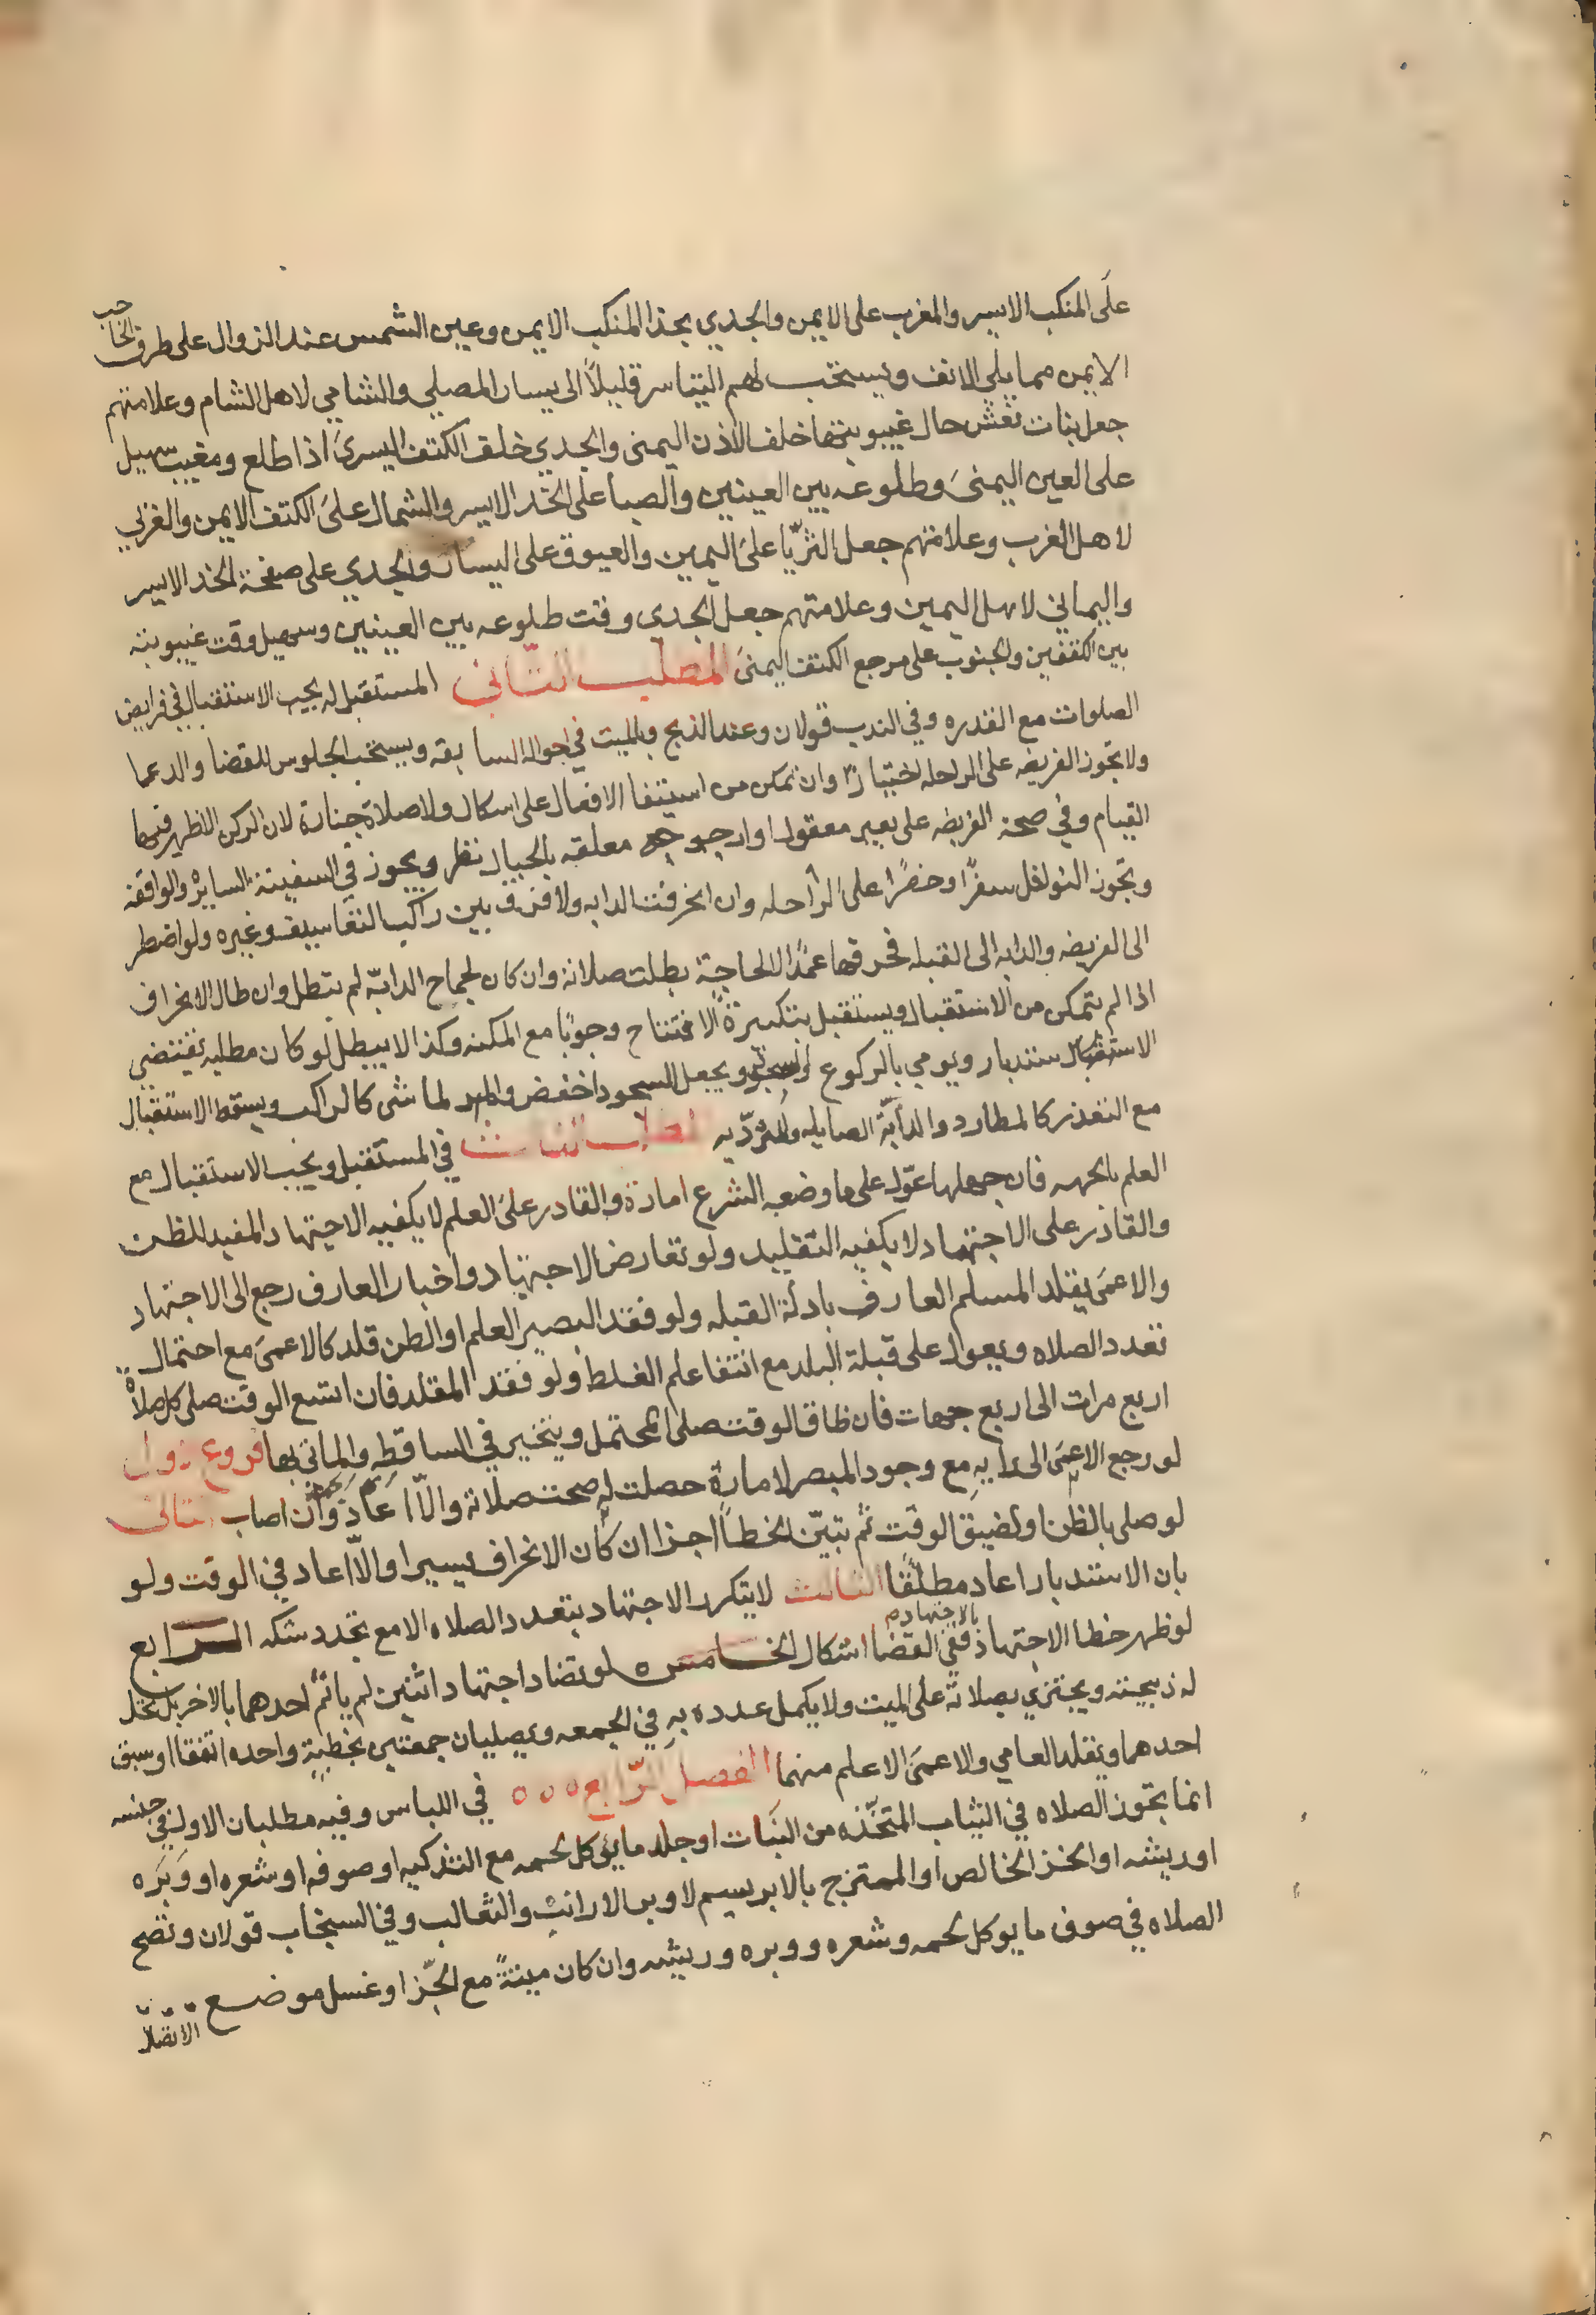 على المنكب الايسر والمغرب على الايمن والجدي بحذا المنكب الايمن وعين الشمس عند الزوال على طرف الحاجب
الايمن مما يلي الانف ويستحب لهم التياسر قليلاً الى يسار المصلي والشامي لاهل الشام وعلامتهم
جعل بنات نعش حال غيبوبتها خلف الاذن اليمنى والجدي خلف الكتف اليسرى اذا طلع ومغيب سهيل
على العين اليمنى وطلوعه بين العينين والصبا على الخد الايسر والشمال على الكتف الايمن والغربي
لاهل الغرب وعلامتهم جعل الثريّا على اليمين والعيوق على اليسار والجدي على صفحة الخد الايسر
واليماني لاهل اليمن وعلامتهم جعل الجدي وقت طلوعه بين العينين وسهيل وقت غيبوبته
بين الكتفين والجنوب على مرجع الكتف اليمنى المطلب الثاني المستقبل له يجب الاستقبال في فرايض
الصلوات مع القدره وفي الندب قولان وعند الذبح وبالميت في احواله السابقه ويستحب الجلوس للقضا والدعا
ولا تجوز الفريضه على الراحله اختيارًا وان تمكن من استيفا الافعال على اشكال ولا صلاة جنازة لان الركن الاظهر فيها
القيام وفي صحة الفريضه على بعير معقول او ارجوحه معلقه بالحبال نظر ويجوز في السفينة السايره والواقفه
وتجوز النوافل سفرًا وحضرًا على الراحله وان انحرفت الدابه ولا فرق بين راكب التعاسيف وغيره ولو اضطر
الى الفريضه والدابه الى القبله فحرفها عمدًا لا لحاجة بطلت صلاته وان كان لجماح الدابّه لم تبطل وان طال الانحراف
اذا لم يتمكن من الاستقبال ويستقبل بتكبيرة الافتتاح وجوبًا مع المكنه وكذا لا يبطل لو كان مطلبه يقتضي
الاستدبار ويومي بالركوع والسجود ويجعل السجود اخفض والماشي كالراكب ويسقط الاستقبال
مع التعذر كالمطارد والدابّة الصايله والمتردّيه المطلب الثالث في المستقبل ويجب الاستقبال مع
العلم بالجهه فان جهلها عوّل على ما وضعه الشرع امارة والقادر على العلم لا يكفيه الاجتهاد المفيد للظن
والقادر على الاجتهاد لا يكفيه التقليد ولو تعارض الاجتهاد واخبار العارف رجع الى الاجتهاد
والاعمى يقلد المسلم العارف بادلة القبله ولو فقد البصير العلم او الظن قلد كالاعمى مع احتمال
تعدد الصلاه ويعول على قبلة البلد مع انتفا علم الغلط ولو فقد المقلد فان اتسع الوقت صلى كل صلاة
اربع مرات الى اربع جهات فان ضاق الوقت صلى المحتمل ويتخير في الساقطه والماتي بها فروع الاول
لو رجع الاعمى الى رايه مع وجود المبصر لامارة حصلت له صحت صلاته والّا اعاد وان اصاب الثاني
لو صلى بالظن او لضيق الوقت ثم تبيّن الخطا اجزا ان كان الانحراف يسيرا والّا اعاد في الوقت ولو
بان الاستدبار اعاد مطلقًا الثالث لا يتكرر الاجتهاد بتعدد الصلاه الا مع تجدد شكه الرابع
لو ظهر خطا الاجتهاد بالاجتهاد ففي القضا اشكال الخامس لو تضاد اجتهاد اثنين لم ياتم احدهما بالاخر بل تحل
له ذبيحته ويجتزي بصلاته على الميت ولا يكمل عدده به في الجمعه ويصليان جمعتين بخطبة واحده اتفقا او سبق
احدهما ويقلد العامي والاعمى الاعلم منهما الفصل الرّابع في اللباس وفيه مطلبان الاول في جنسه
انما تجوز الصلاه في الثياب المتخّذه من النبات او جلد ما يؤكل لحمه مع التذكيه او صوفه او شعره او وبره
او ريشه او الخز الخالص او الممتزج بالابريسم لا وبر الارانب والثعالب وفي السنجاب قولان وتصح
الصلاه في صوف ما يوكل لحمه وشعره ووبره وريشه وان كان ميتة مع الجّز او غسل موضع
الاتصال